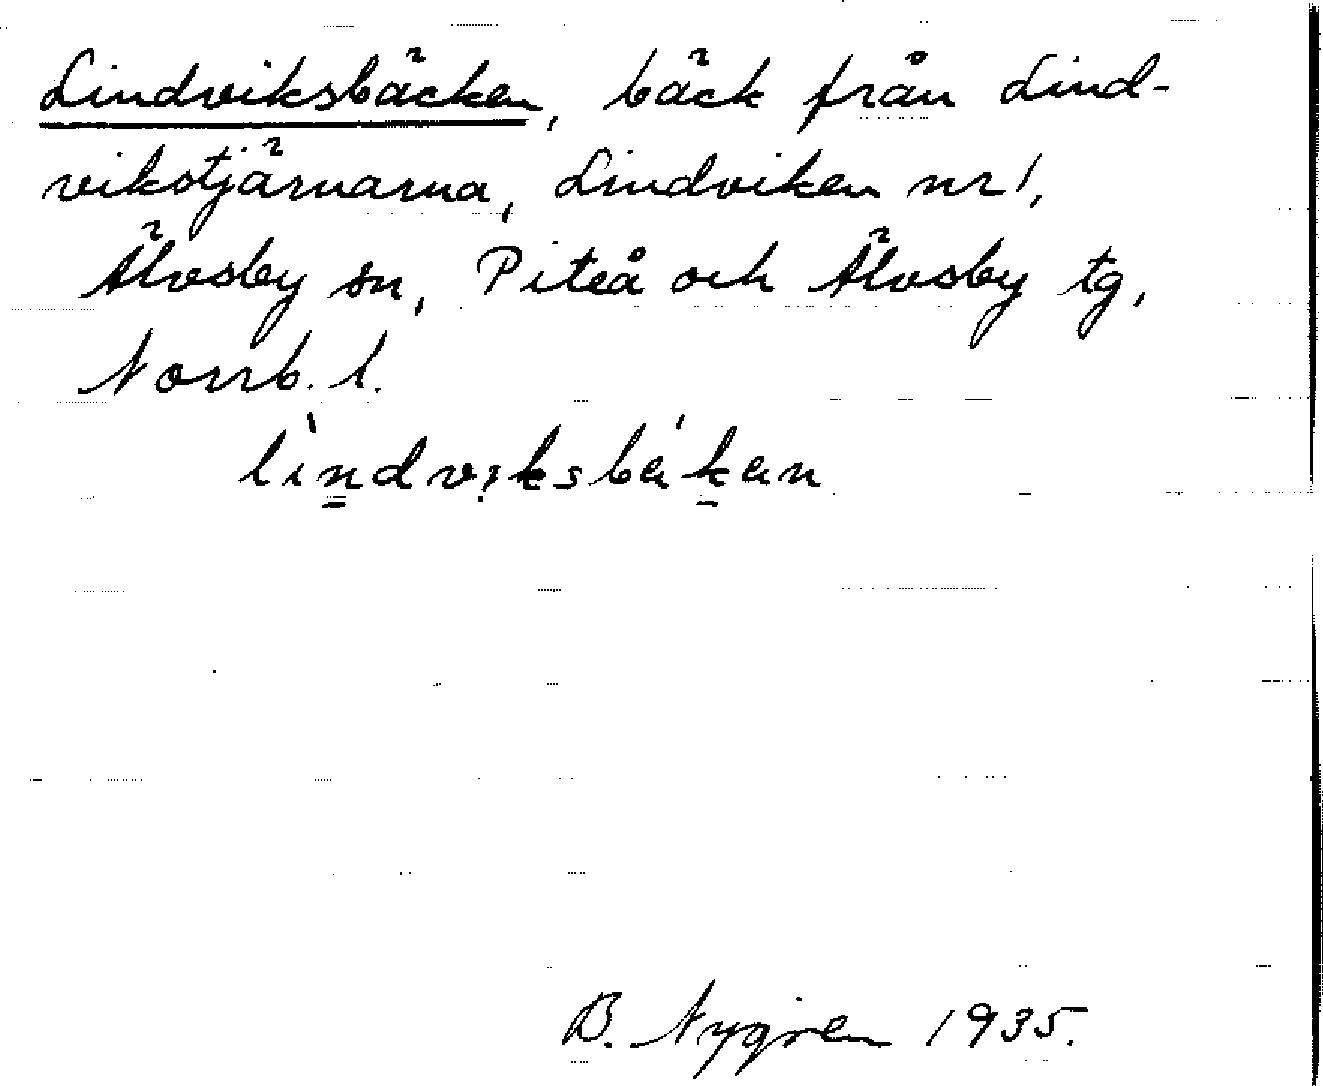 Lindviksbäcken, bäck från Lind-
vikstjärnarna, Lindviken nr 1,
Älvsby sn, Piteå och Älvsby tg,
Norrb. l.
lìndviksbä́kan
B. Nygren 1935.